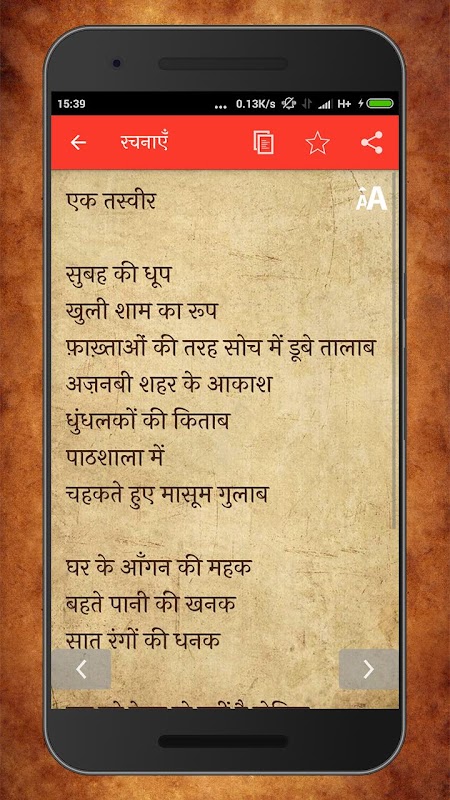 15:39
... 0.13K/s H+
रचनाएँ
एक तस्वीर
AA
सुबह की धूप
खुली शाम का रूप
फ़ाख़्ताओं की तरह सोच में डूबे तालाब
अज़नबी शहर के आकाश
धुंधलकों की किताब
पाठशाला में
चहकते हुए मासूम गुलाब
घर के आँगन की महक
बहते पानी की खनक
सात रंगों की धनक